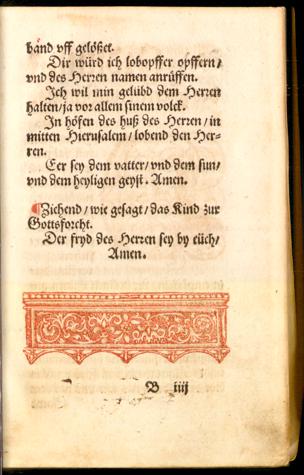 band vff gelößet.
Dir würd ich lobopffer opffern/
vnd des Herren namen anrüffen.
Jch wil min gelübd dem Herren
halten/ja vor allem sinem volck.
Jn höfen des huß des Herren/in
mitten Hierusalem/lobend den Her-
ren.
Eer sey dem vatter/vnd dem sun/
vnd dem heyligen geyst. Amen.
¶Ziehend/wie gesagt/das Kind zur
Gottsforcht.
Der fryd des Herren sey by eüch/
Amen.
B iiij